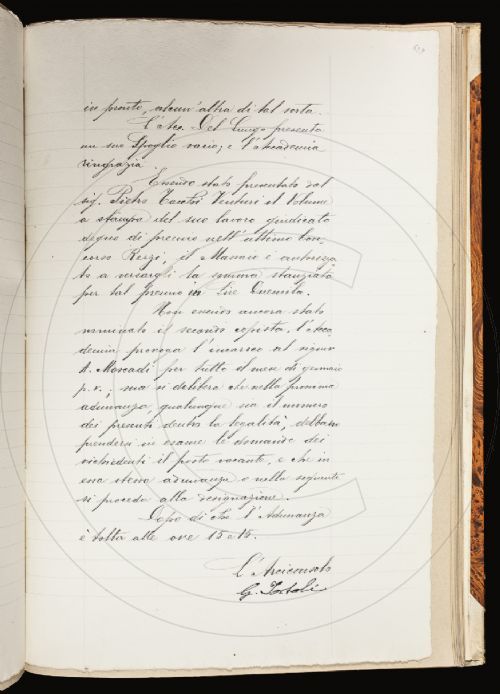 in pronto, alcun'altra di tal sorta.
L'Acc. Del Lungo presenta
un suo Spoglio vario; e l'Accademia
ringrazia.
Essendo stato presentato dal
sig. Pietro Tacchi Venturi il volume
a stampa del suo lavoro giudicato
degno di premio nell'ultimo Con-
corso Rezzi, il Massaio è autorizza-
to a versargli la somma stanziata
per tal premio in Lire Duemila.
Non essendo ancora stato
nominato il secondo copista, l'Acca-
demia proroga l'incarico al signor
A. Moscadi per tutto il mese di gennaio
p. v.; ma si delibera che nella prossima
adunanza, qualunque sia il numero
dei presenti dentro la legalità, debbano
prendersi in esame le domande dei
richiedenti il posto vacante, e che in
essa stessa adunanza o nella seguente
si proceda alla designazione.
Dopo di che l'Adunanza
è tolta alle ore 15 e 15.
L'Arciconsolo
G. Tortoli